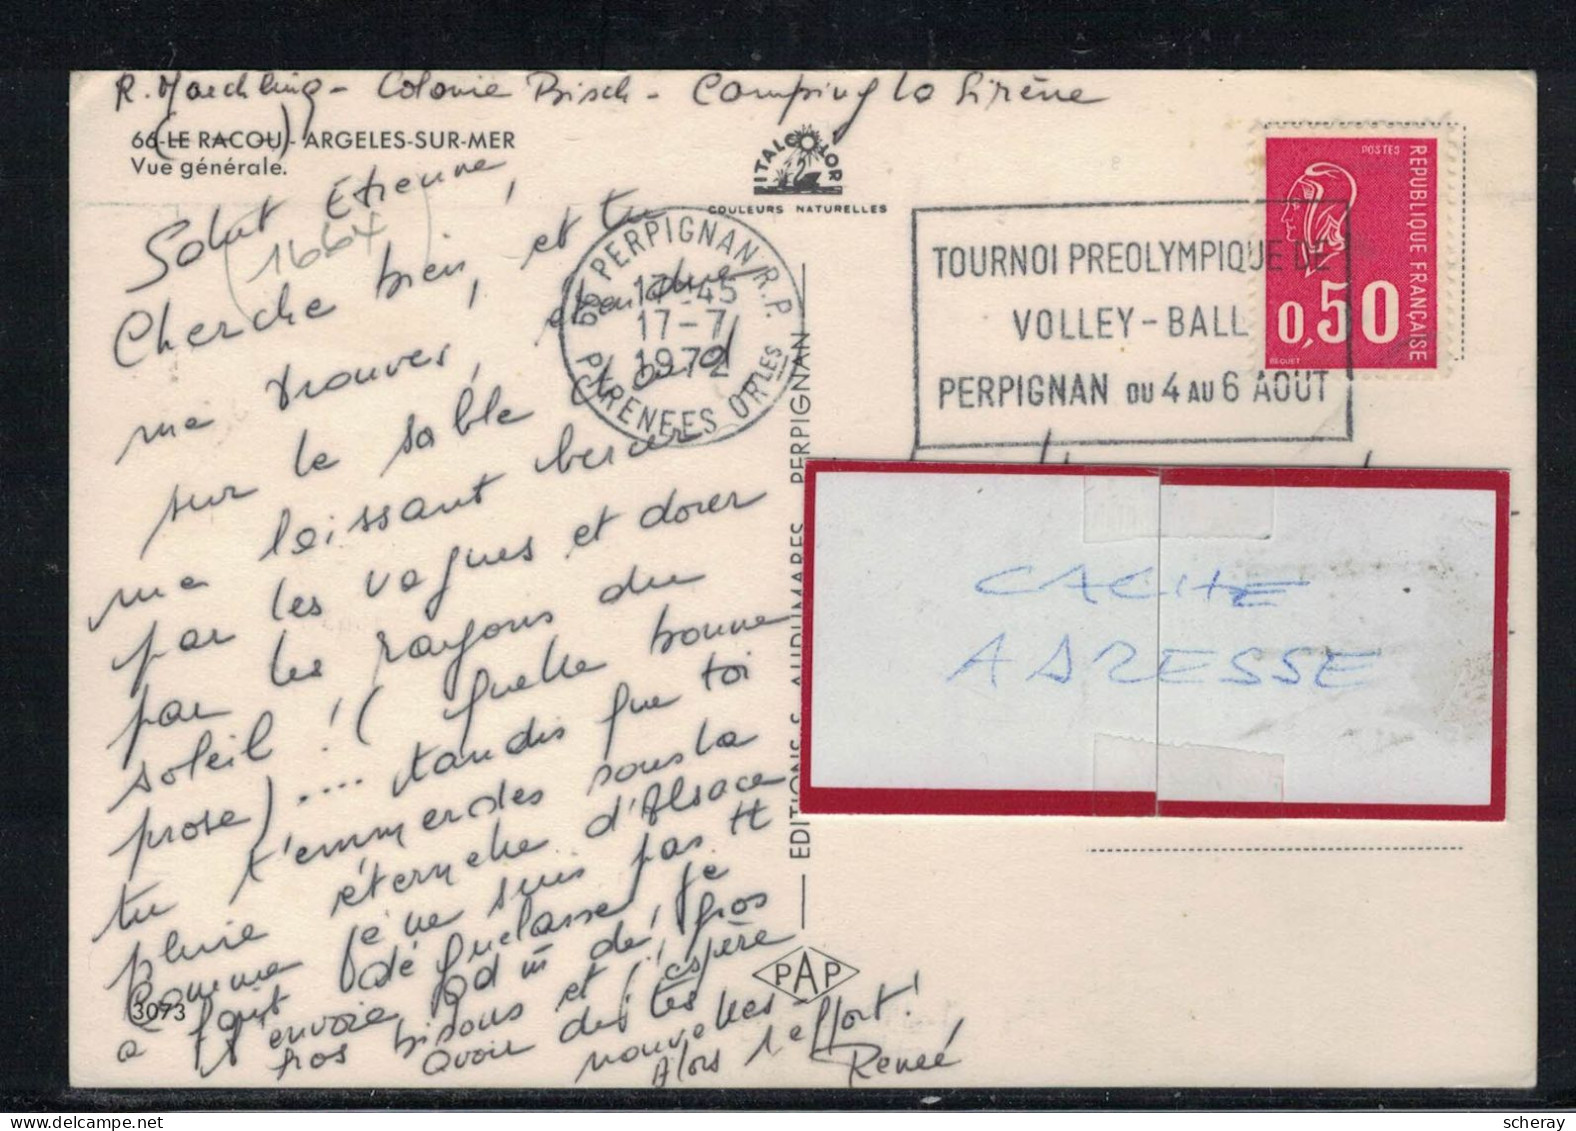 R. Maechling - Colonie Bisch - Camping La Sirène
66-(LE RACOU)-ARGELES-SUR-MER
Vue générale.
ITALCOLOR
COULEURS NATURELLES
Salut Etienne,
(1664)
Cherche bien, et tu
me trouves, étendue
sur le sable chaud
me laissant bercer
par les vagues et dorer
par les rayons du
soleil ! (quelle bonne
prose) .... tandis que toi
tu t'emmerdes sous la
pluie éternelle d'Alsace
Comme je ne suis pas tt
a fait dégueulasse, je
t'envoie qd même de
gros bisous et j'espère
avoir de tes
nouvelles
Alors 1 effort !
Renée
3073
66 PERPIGNAN R.P.
17-45
17-7
1972
PYRENEES ORLES
TOURNOI PREOLYMPIQUE DE
VOLLEY-BALL
PERPIGNAN DU 4 AU 6 AOUT
POSTES
REPUBLIQUE FRANÇAISE
0,50
BEQUET
EDITIONS S. AUDUMARES PERPIGNAN
PAP
CACHE
ADRESSE
scheray